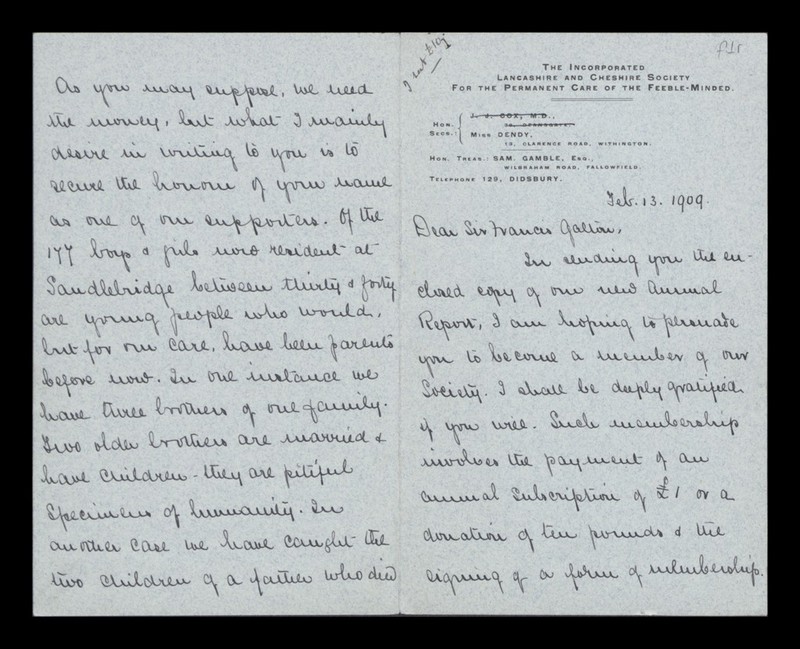 I sent £10
f1r
THE INCORPORATED
LANCASHIRE AND CHESHIRE SOCIETY
FOR THE PERMANENT CARE OF THE FEEBLE-MINDED.
HON. SECS.:
J. J. COX, M.D.,
MISS DENDY,
13, CLARENCE ROAD, WITHINGTON.
HON. TREAS.: SAM. GAMBLE, ESQ.,
WILBRAHAM ROAD, FALLOWFIELD.
TELEPHONE 129, DIDSBURY.
Feb. 13. 1909.
Dear Sir Francis Galton,
In sending you the en-
closed copy of our new Annual
Report, I am hoping to persuade
you to become a member of our
Society. I shall be deeply gratified
if you will. Such membership
involves the payment of an
annual subscription of £1 or a
donation of ten pounds & the
signing of a form of membership.
As you may suppose, we need
the money, but what I mainly
desire in writing to you is to
secure the honour of your name
as one of our supporters. Of the
177 boys & girls now resident at
Sandlebridge between thirty & forty
are young people who would,
but for our care, have been parents
before now. In one instance we
have three brothers of one family.
Two older brothers are married &
have children - they are pitiful
specimens of humanity. In
another case we have caught the
two children of a father who died